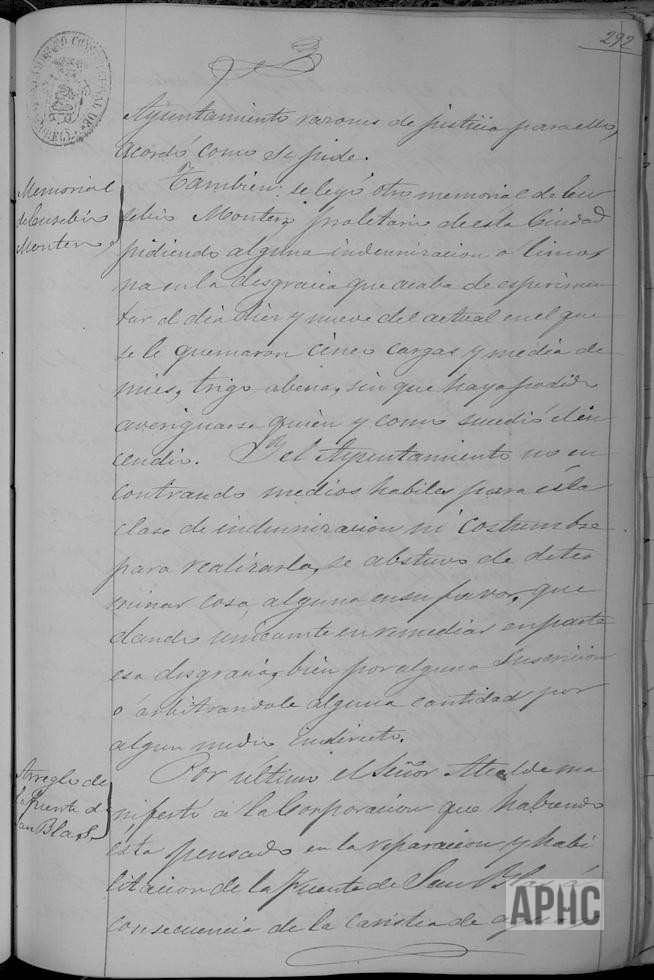 292
Ayuntamiento razones de justicia para ello,
acordó como se pide.
Memorial
de Eusebio
Montero
Tambien se leyó otro memorial de Eu
sebio Montero, proletario de esta Ciudad
pidiendo alguna indemnizacion o limos
na en la desgracia que acaba de esperimen
tar el dia diez y nueve del actual en el que
se le quemaron cinco cargas y media de
mies, trigo abena, sin que haya podido
averiguarse quien y como sucedió el in
cendio. Y el Ayuntamiento no en
contrando medios habiles para ésta
clase de indemnizacion ni costumbre
para realizarla, se abstuvo de deter
minar cosa alguna en su favor, que
dando unicamte en remediar en parte
esa desgracia, bien por alguna Suscricion
ó arbitrandole alguna cantidad por
algun medio indirecto.
Arreglo de
la fuente de
San Blas
Por último el Señor Alcalde ma
nifestó á la Corporacion que habiendo
ésta pensado en la reparacion y habi
litacion de la Fuente de San Blas á
consecuencia de la caristia de
APHC